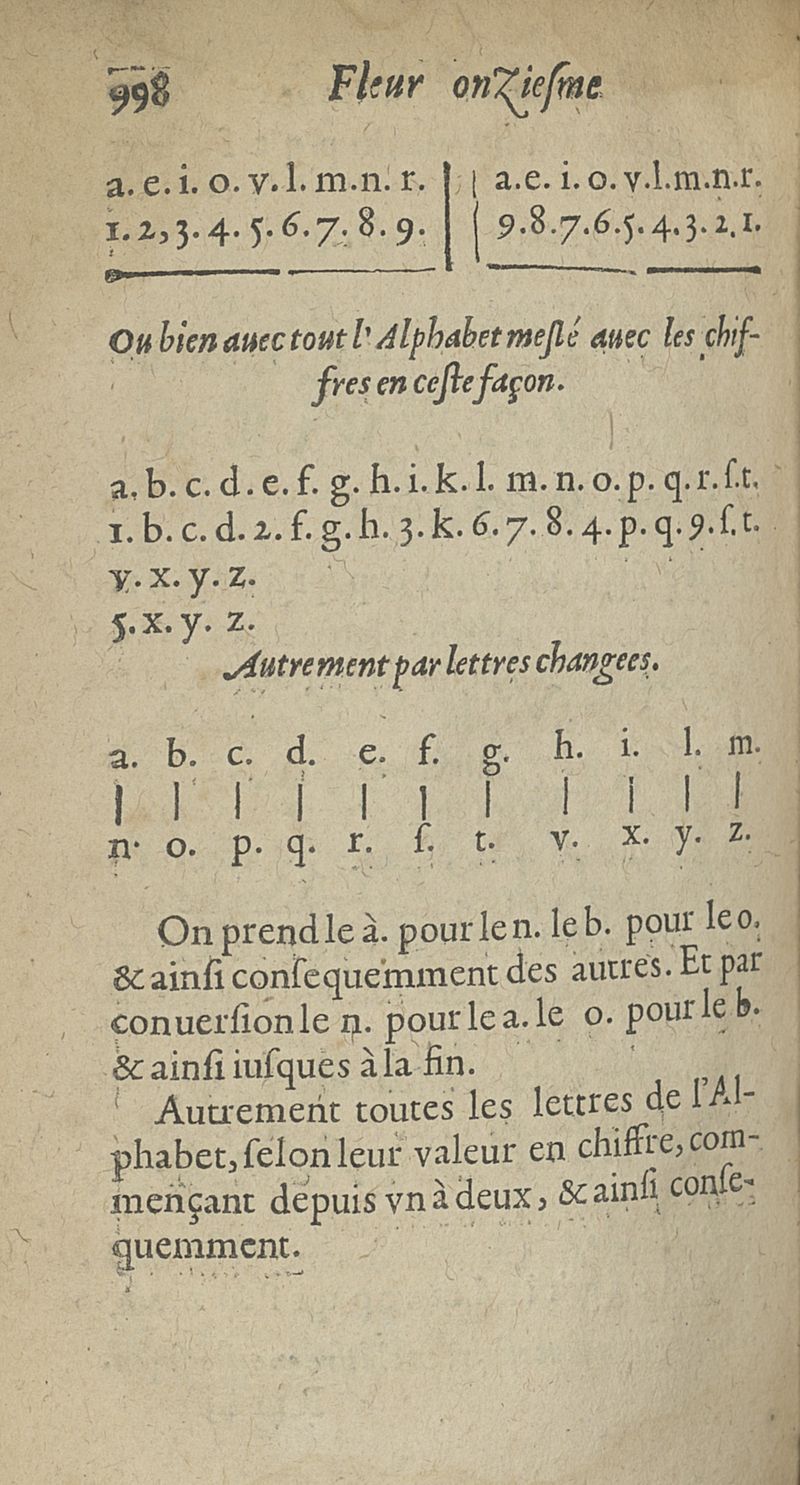 998 Fleur onzieſme
a. e. i. o. v. l. m. n. r. | a. e. i. o. v. l. m. n. r.
1. 2, 3. 4. 5. 6. 7. 8. 9. | 9. 8. 7. 6. 5. 4. 3. 2. 1.
Ou bien auec tout l'Alphabet meſlé auec les chif-
fres en ceſte façon.
a. b. c. d. e. f. g. h. i. k. l. m. n. o. p. q. r. ſ. t.
1. b. c. d. 2. f. g. h. 3. k. 6. 7. 8. 4. p. q. 9. ſ. t.
v. x. y. z.
5. x. y. z.
Autrement par lettres changees.
a. b. c. d. e. f. g. h. i. l. m.
| | | | | | | | | | |
n. o. p. q. r. ſ. t. v. x. y. z.
On prend le à. pour le n. le b. pour le o.
& ainſi conſequemment des autres. Et par
conuerſion le n. pour le a. le o. pour le b.
& ainſi iuſques à la fin.
Autrement toutes les lettres de l'Al-
phabet, ſelon leur valeur en chiffre, com-
mençant depuis vn à deux, & ainſi conſe-
quemment.